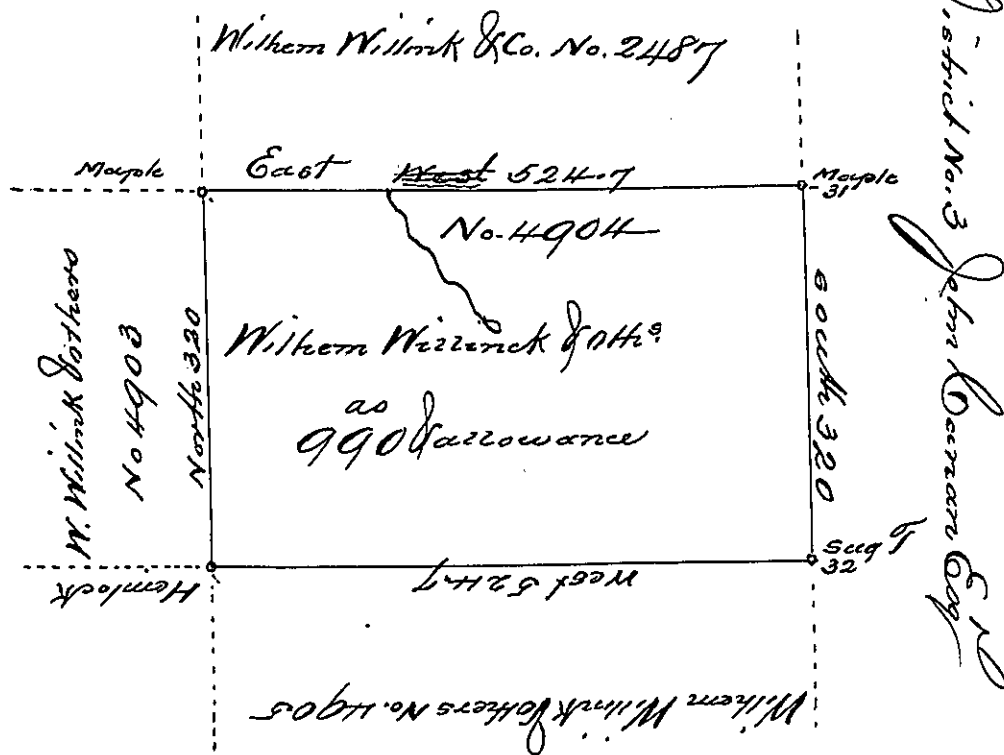 Wilhem Willink & Co. No. 2487
Maple
East West 524.7
Maple
31
No. 4904
W. Willink & others
No 4903
North 320
Wilhem Willinck & oths.
as
990 & allowance
South 320
Sug T
32
Hemlock
West 524.7
Wilhem Willink & others No. 4905
District No. 3 John Canan Esq